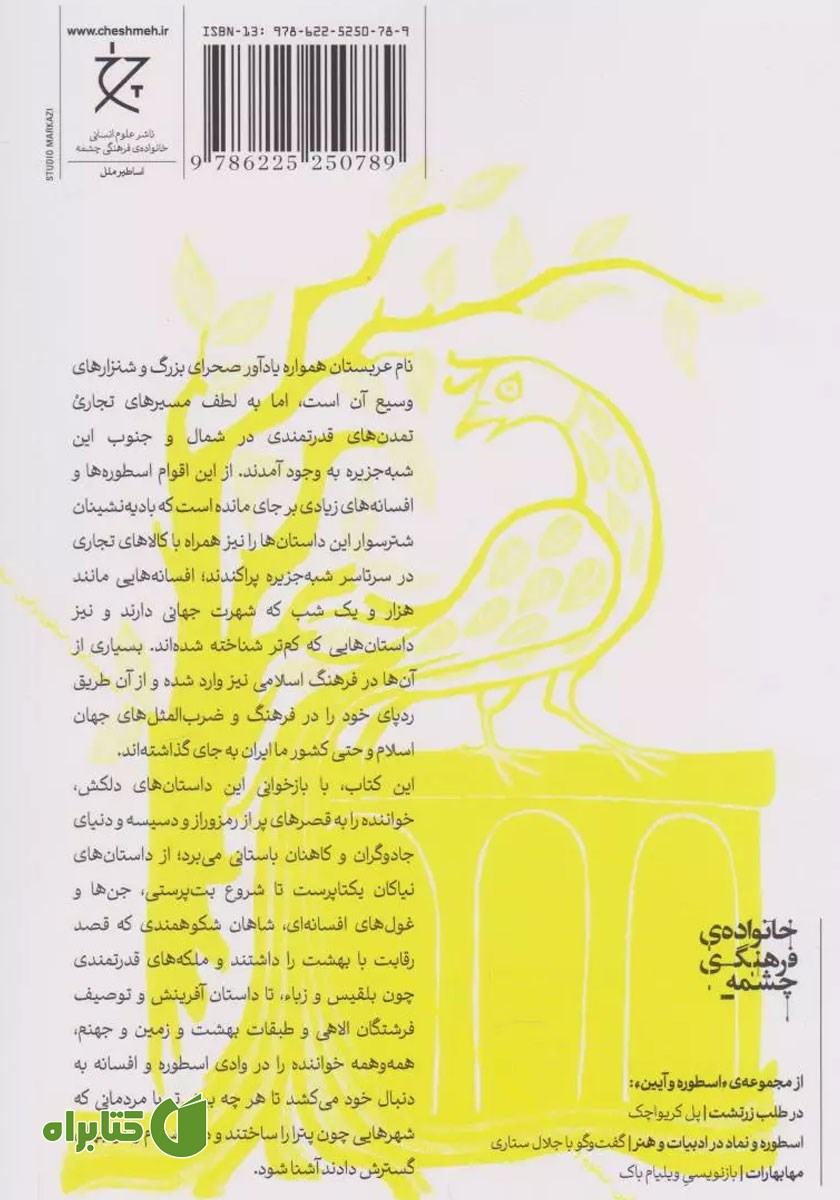 www.cheshmeh.ir
ناشر علوم انسانی
خانواده‌ی فرهنگی چشمه
اساطیر ملل
STUDIO MARKAZI
ISBN-13: 978-622-5250-78-9
9 786225 250789
نام عربستان همواره یادآور صحرای بزرگ و شنزارهای
وسیع آن است، اما به لطف مسیرهای تجاری
تمدن‌های قدرتمندی در شمال و جنوب این
شبه‌جزیره به وجود آمدند. از این اقوام اسطوره‌ها و
افسانه‌های زیادی بر جای مانده است که بادیه‌نشینان
شترسوار این داستان‌ها را نیز همراه با کالاهای تجاری
در سرتاسر شبه‌جزیره پراکندند؛ افسانه‌هایی مانند
هزار و یک شب که شهرت جهانی دارند و نیز
داستان‌هایی که کم‌تر شناخته شده‌اند. بسیاری از
آن‌ها در فرهنگ اسلامی نیز وارد شده و از آن طریق
ردپای خود را در فرهنگ و ضرب‌المثل‌های جهان
اسلام و حتی کشور ما ایران به جای گذاشته‌اند.
این کتاب، با بازخوانی این داستان‌های دلکش،
خواننده را به قصرهای پر از رمزوراز و دسیسه و دنیای
جادوگران و کاهنان باستانی می‌برد؛ از داستان‌های
نیاکان یکتاپرست تا شروع بت‌پرستی، جن‌ها و
غول‌های افسانه‌ای، شاهان شکوهمندی که قصد
رقابت با بهشت را داشتند و ملکه‌های قدرتمندی
چون بلقیس و زباء، تا داستان آفرینش و توصیف
فرشتگان الاهی و طبقات بهشت و زمین و جهنم،
همه‌وهمه خواننده را در وادی اسطوره و افسانه به
دنبال خود می‌کشد تا هر چه با مردمانی که
شهرهایی چون پترا را ساختند و
گسترش دادند آشنا شود.
خانواده‌ی
فرهنگی
چشمه
از مجموعه‌ی «اسطوره و آیین»:
در طلب زرتشت | پل کریواچک
اسطوره و نماد در ادبیات و هنر | گفت‌وگو با جلال ستاری
مهابهارات | بازنویسی ویلیام باک
کتابراه